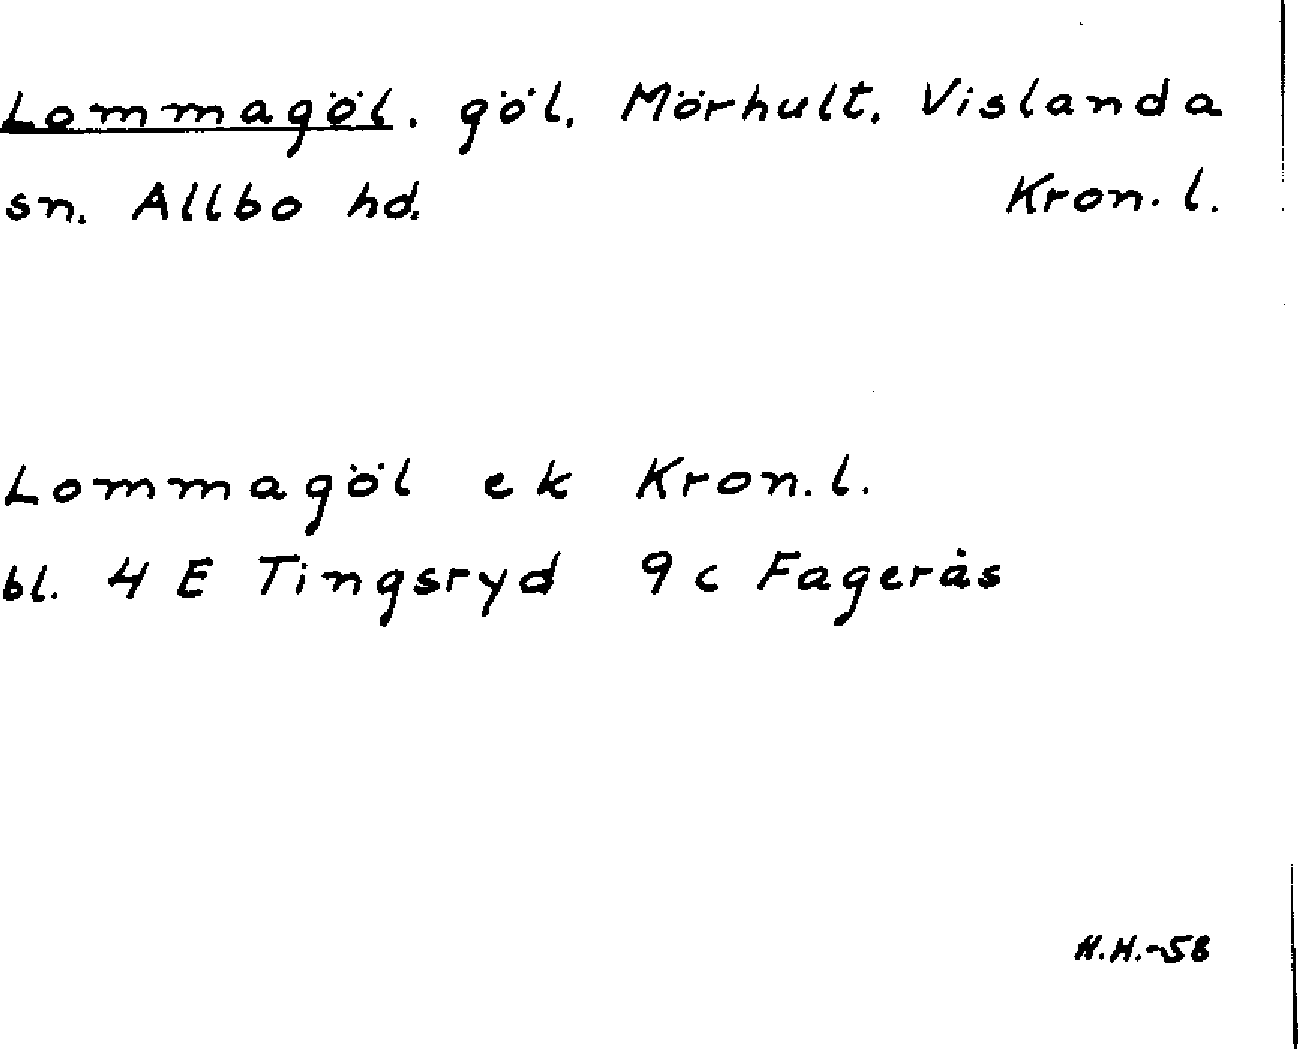 Lommagöl. göl. Mörhult. Vislanda
sn. Allbo hd. Kron. l.
Lommagöl ek Kron. l.
bl. 4 E Tingsryd 9 c Fagerås
H.H.-58